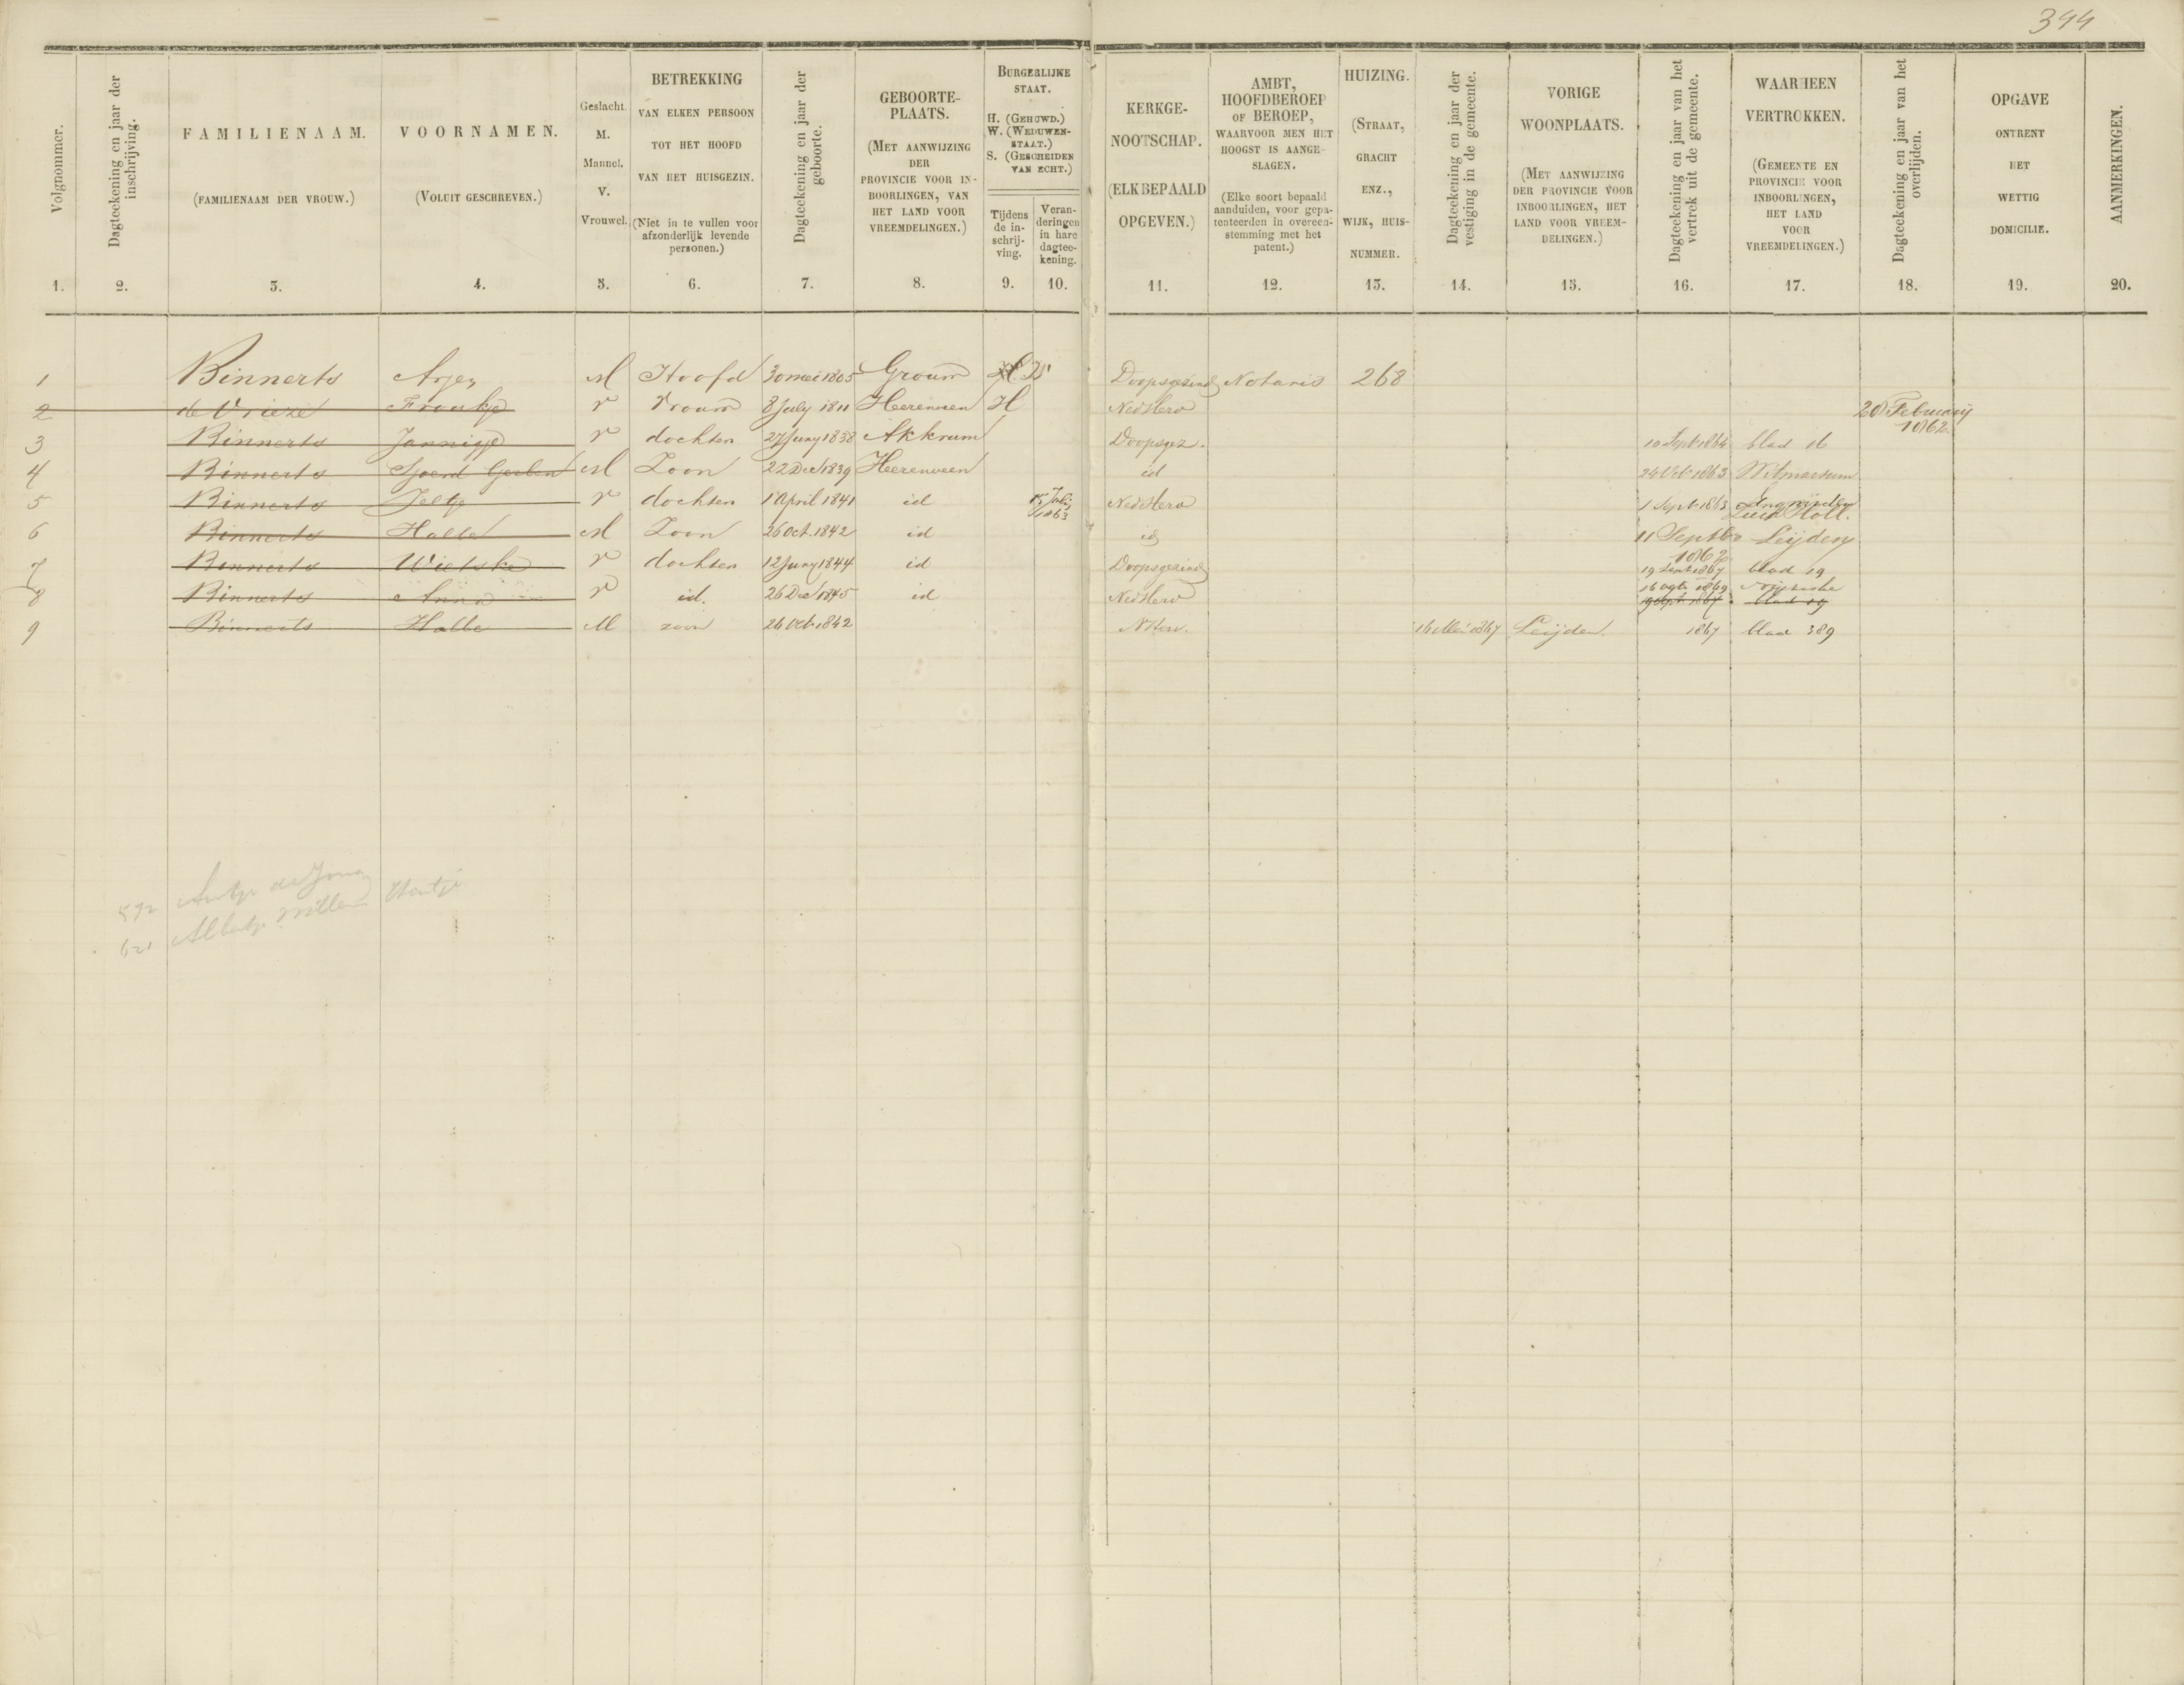 344
Volgnommer.
Dagteekening en jaar der inschrijving.
FAMILIENAAM.
(FAMILIENAAM DER VROUW.)
VOORNAMEN.
(VOLUIT GESCHREVEN.)
Geslacht.
M.
Mannel.
V.
Vrouwel.
BETREKKING
VAN ELKEN PERSOON
TOT HET HOOFD
VAN HET HUISGEZIN.
(Niet in te vullen voor
afzonderlijk levende
personen.)
Dagteekening en jaar der geboorte.
GEBOORTE-
PLAATS.
(MET AANWIJZING
DER
PROVINCIE VOOR IN-
BOORLINGEN, VAN
HET LAND VOOR
VREEMDELINGEN.)
BURGERLIJKE
STAAT.
H. (GEHUWD.)
W. (WEDUWEN-
STAAT.)
S. (GESCHEIDEN
VAN ECHT.)
Tijdens
de in-
schrij-
ving.
Veran-
deringen
in hare
dagtee-
kening.
KERKGE-
NOOTSCHAP.
(ELK BEPAALD
OPGEVEN.)
AMBT,
HOOFDBEROEP
OF BEROEP,
WAARVOOR MEN HET
HOOGST IS AANGE-
SLAGEN.
(Elke soort bepaald
aanduiden, voor gepa-
tenteerden in overeen-
stemming met het
patent.)
HUIZING.
(STRAAT,
GRACHT
ENZ.,
WIJK, HUIS-
NUMMER.
Dagteekening en jaar der vestiging in de gemeente.
VORIGE
WOONPLAATS.
(MET AANWIJZING
DER PROVINCIE VOOR
INBOORLINGEN, HET
LAND VOOR VREEM-
DELINGEN.)
Dagteekening en jaar van het vertrek uit de gemeente.
WAARHEEN
VERTROKKEN.
(GEMEENTE EN
PROVINCIE VOOR
INBOORLINGEN,
HET LAND
VOOR
VREEMDELINGEN.)
Dagteekening en jaar van het overlijden.
OPGAVE
ONTRENT
HET
WETTIG
DOMICILIE.
AANMERKINGEN.
1. 2. 3. 4. 5. 6. 7. 8. 9. 10. 11. 12. 13. 14. 15. 16. 17. 18. 19. 20.
1 Binnerts Arjen M Hoofd 30 mei 1805 Grouw Doopsgezind Notaris 268
2 de Vrieze Froukje V Vrouw 8 July 1811 Heerenveen H Ned Herv 20 February 1862
3 Binnerts Jannigje V dochter 27 Juny 1838 Akkrum Doopsgez. 10 Sept 1864 blad 16
4 Binnerts Sjoerd Gerben M Zoon 22 Dec 1839 Heerenveen id 24 Oct 1863 Witmarsum
5 Binnerts Jeltje V dochter 1 April 1841 id 15 July 1863 Ned Herv 1 Sept 1863 Zuid Holl.
6 Binnerts Halbe M Zoon 26 Oct. 1842 id id 11 Septbr 1862 Leijden
7 Binnerts Wietske V dochter 12 Juny 1844 id Doopsgezind 19 Sept 1867 blad 19
8 Binnerts Anna V id. 26 Dec 1845 id Ned Herv 1869
19 Sept 1867 blad 19
9 Binnerts Halbe M zoon 26 Oct. 1842 N Herv. 16 Mei 1867 Leijden. 1867 blad 389
592 Antje de Jong
621 Albertje Willem